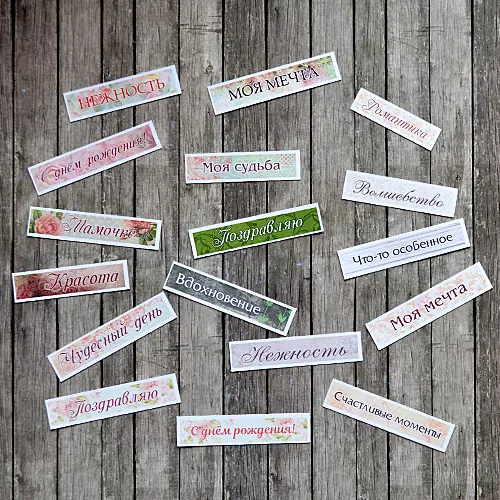 НЕЖНОСТЬ
МОЯ МЕЧТА
Романтика
С днём рождения!
Моя судьба
Волшебство
Мамочке
Поздравляю
Что-то особенное
Красота
Вдохновение
Моя мечта
Чудесный день
Нежность
Поздравляю
С днём рождения!
Счастливые моменты